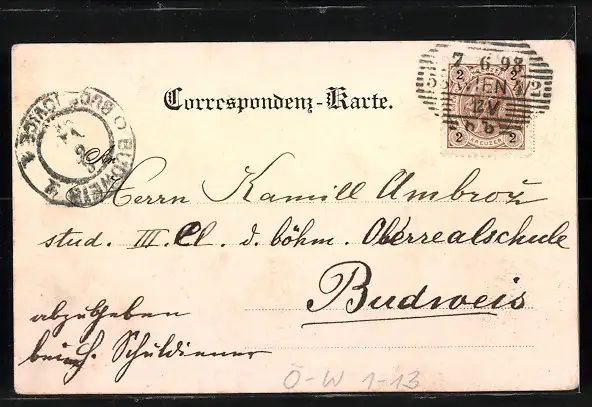 7. 6. 98
WIEN 1/2
2 2
2 2
KREUZER
Correspondenz-Karte.
BUDWEIS
Herrn Kamill Ambrož
stud. III. Cl. d. böhm. Oberrealschule
Budweis
abzugeben
beim H. Schuldiener
Ö-W 1-13